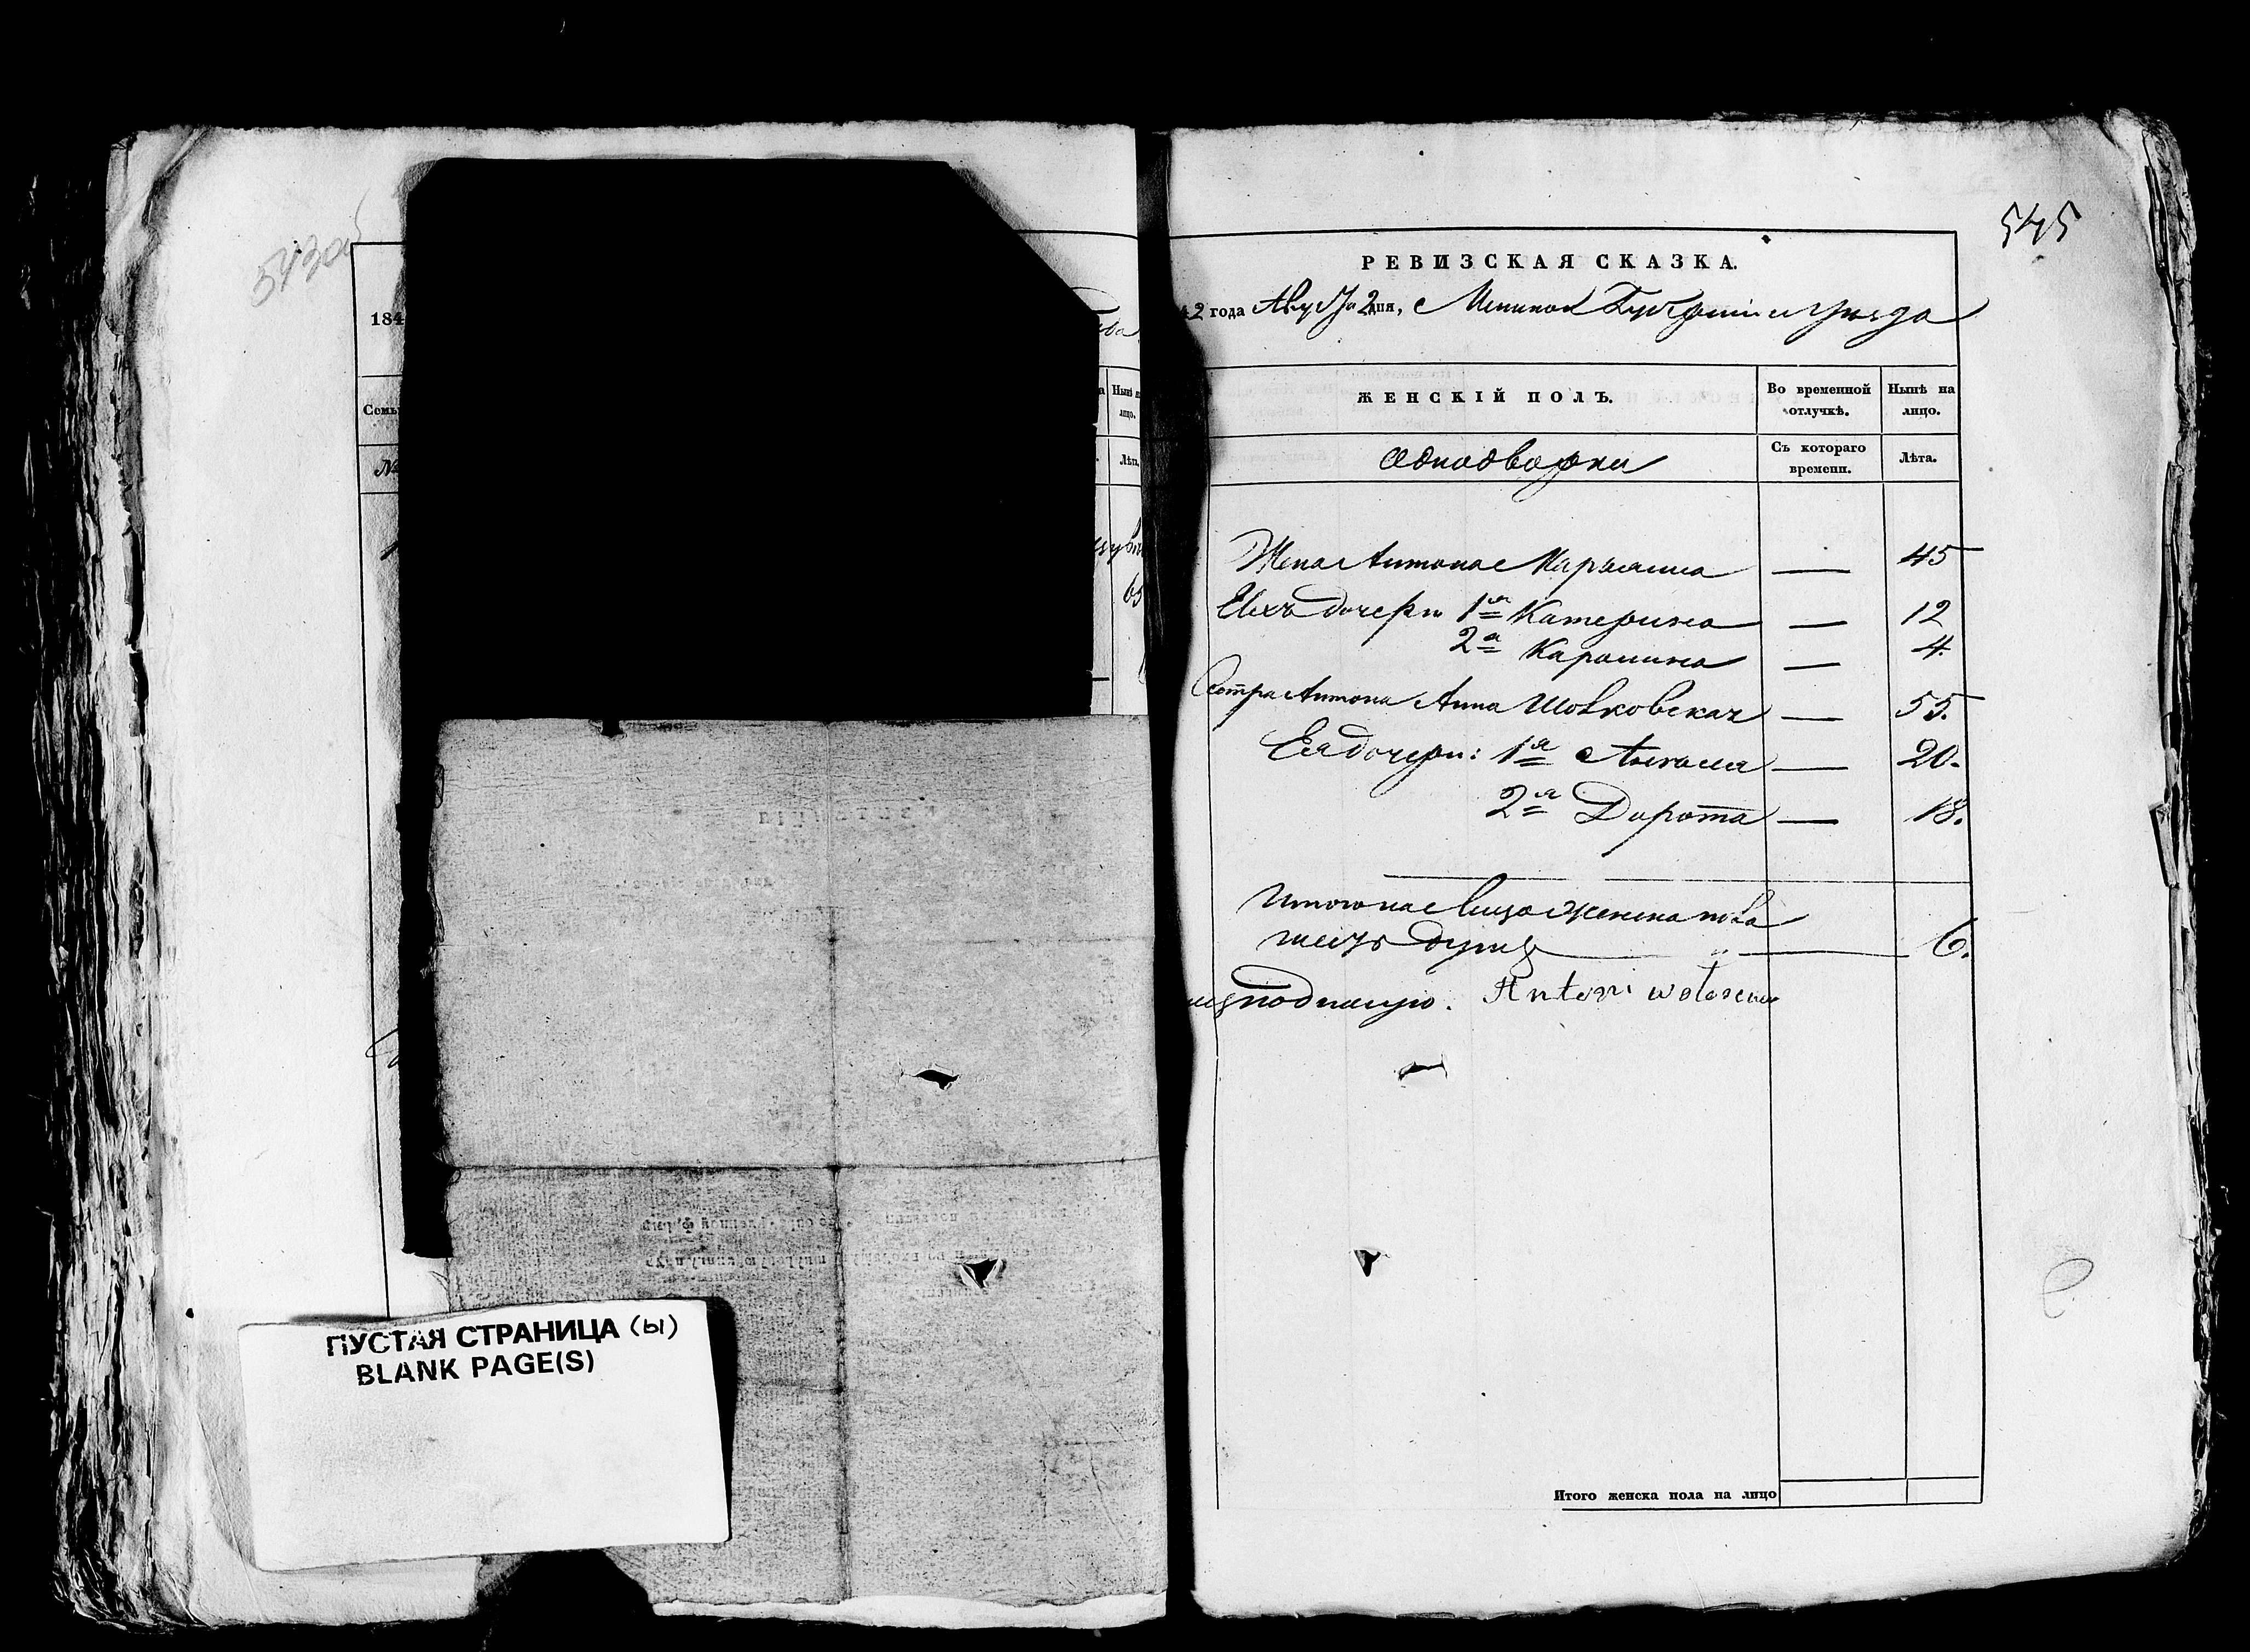 543об
184
Семь
№
Нынѣ
лицо.
Лѣт.
65
ПУСТАЯ СТРАНИЦА (ы)
BLANK PAGE(S)
545
РЕВИЗСКАЯ СКАЗКА.
42 года Августа 2 дня, Минской Губернии и уезда
ЖЕНСКІЙ ПОЛЪ.
Во временной отлучкѣ.
Нынѣ на лицо.
однодворки
Съ котораго времени.
Лѣта.
Жена Антона Марьянна — 45
Ихъ дочери 1я Катерина — 12
2я Каролина — 4.
Сестра Антона Анна Шовковская — 55.
Ея дочери: 1я — 20.
2я Дорота — 18.
Итого на лицо женска пола
шесть душъ — 6.
подписую. Antoni
Итого женска пола на лицо